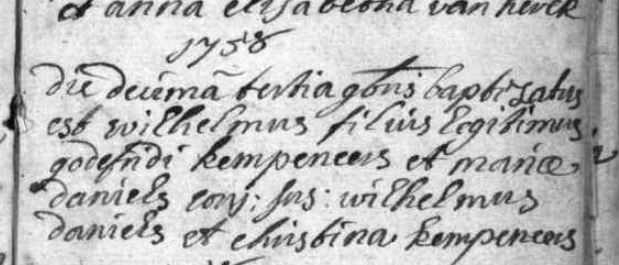 et anna elisabetha van herck
1758
die decimâ tertia 9bris baptizatus
est wilhelmus filius legitimus
godefridi kempeneers et mariæ
daniels conj: sus: wilhelmus
daniels et christina kempeneers